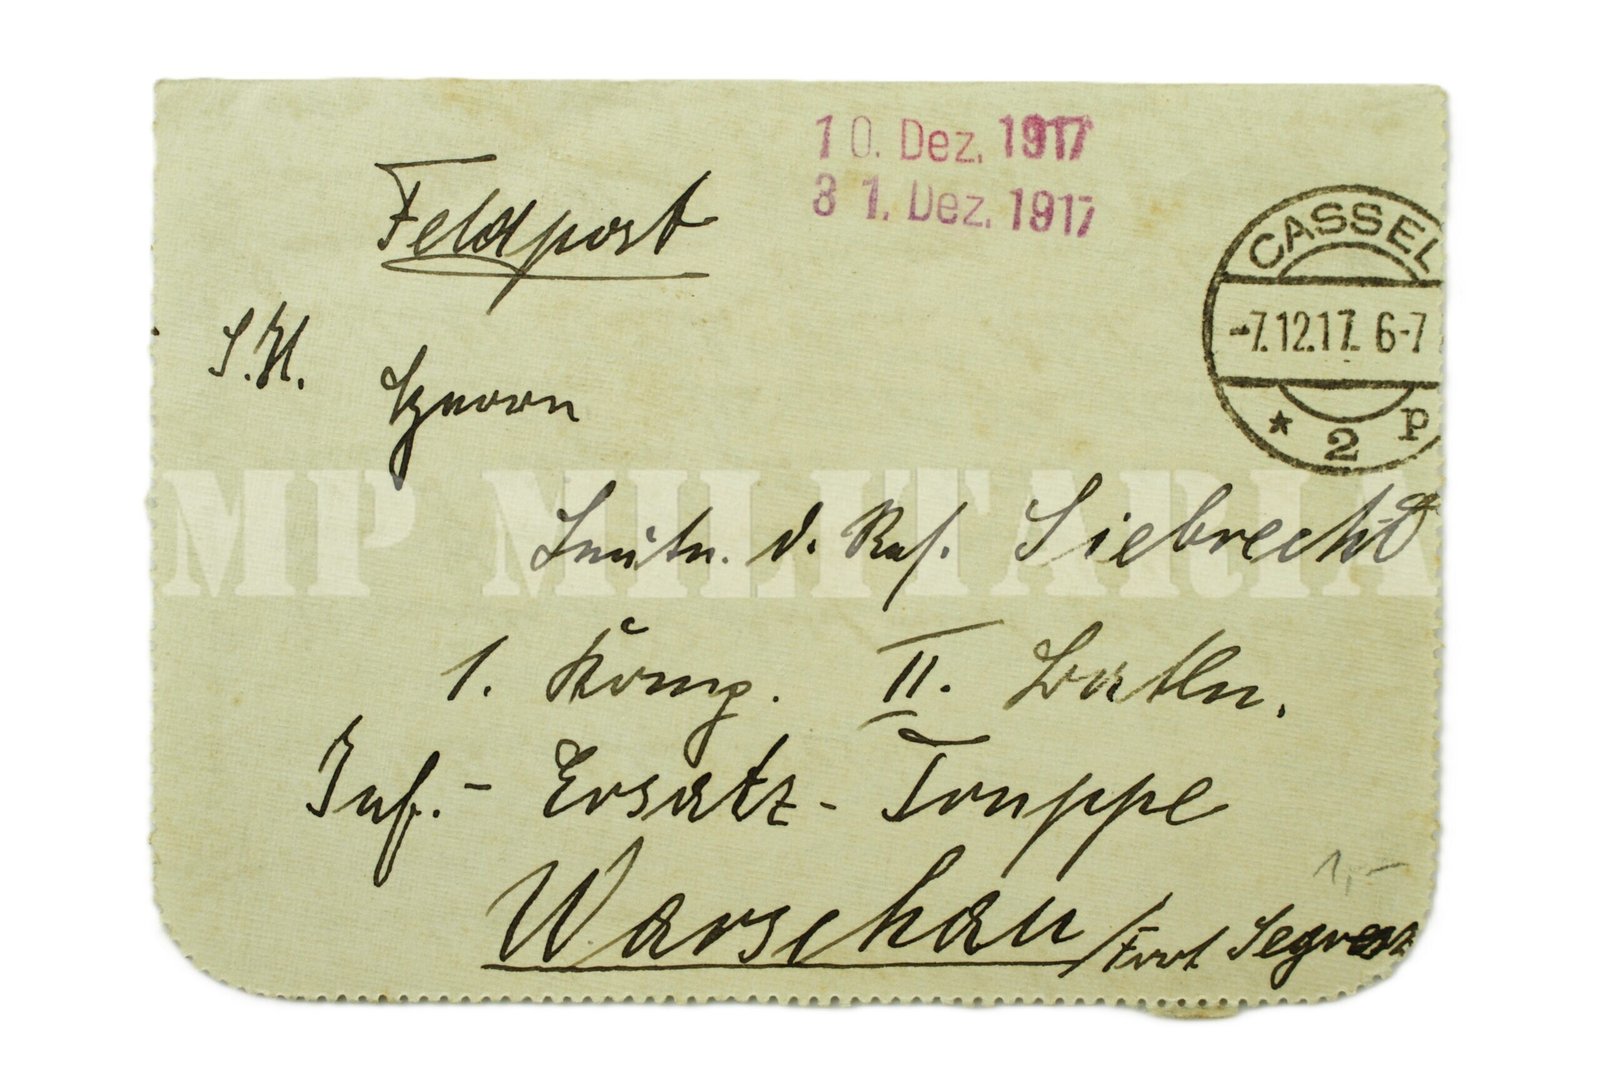 10. Dez. 1917
31. Dez. 1917
Feldpost
CASSEL
-7.12.17. 6-7
* 2 p
S.H.
Herrn
Leutn. d. Res. Siebrecht
1. Komp. II. Batln.
Inf.- Ersatz- Truppe
Warschau / Fort Segresz
1,-
MP MILITARIA